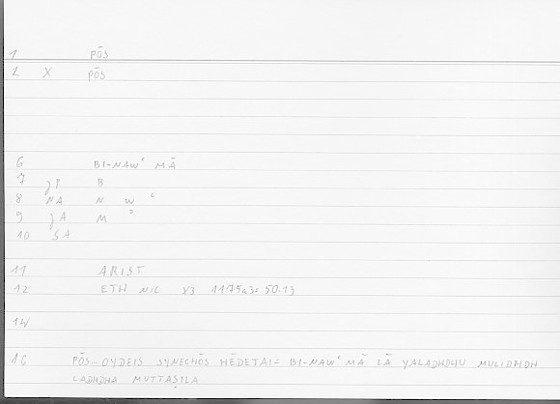 1 PŌS
2 X PŌS
6 BI-NAWʿ MĀ
7 JP B
8 NA N W ʿ
9 JA M ʾ
10 SA
11 ARIST
12 ETH NIC 1175a3= 50.13
14
16 PŌS OYDEIS SYNECHŌS HĒDETAI= BI-NAWʿ MĀ LĀ YALADHDHU
LADHDHA MUTTAṢILA